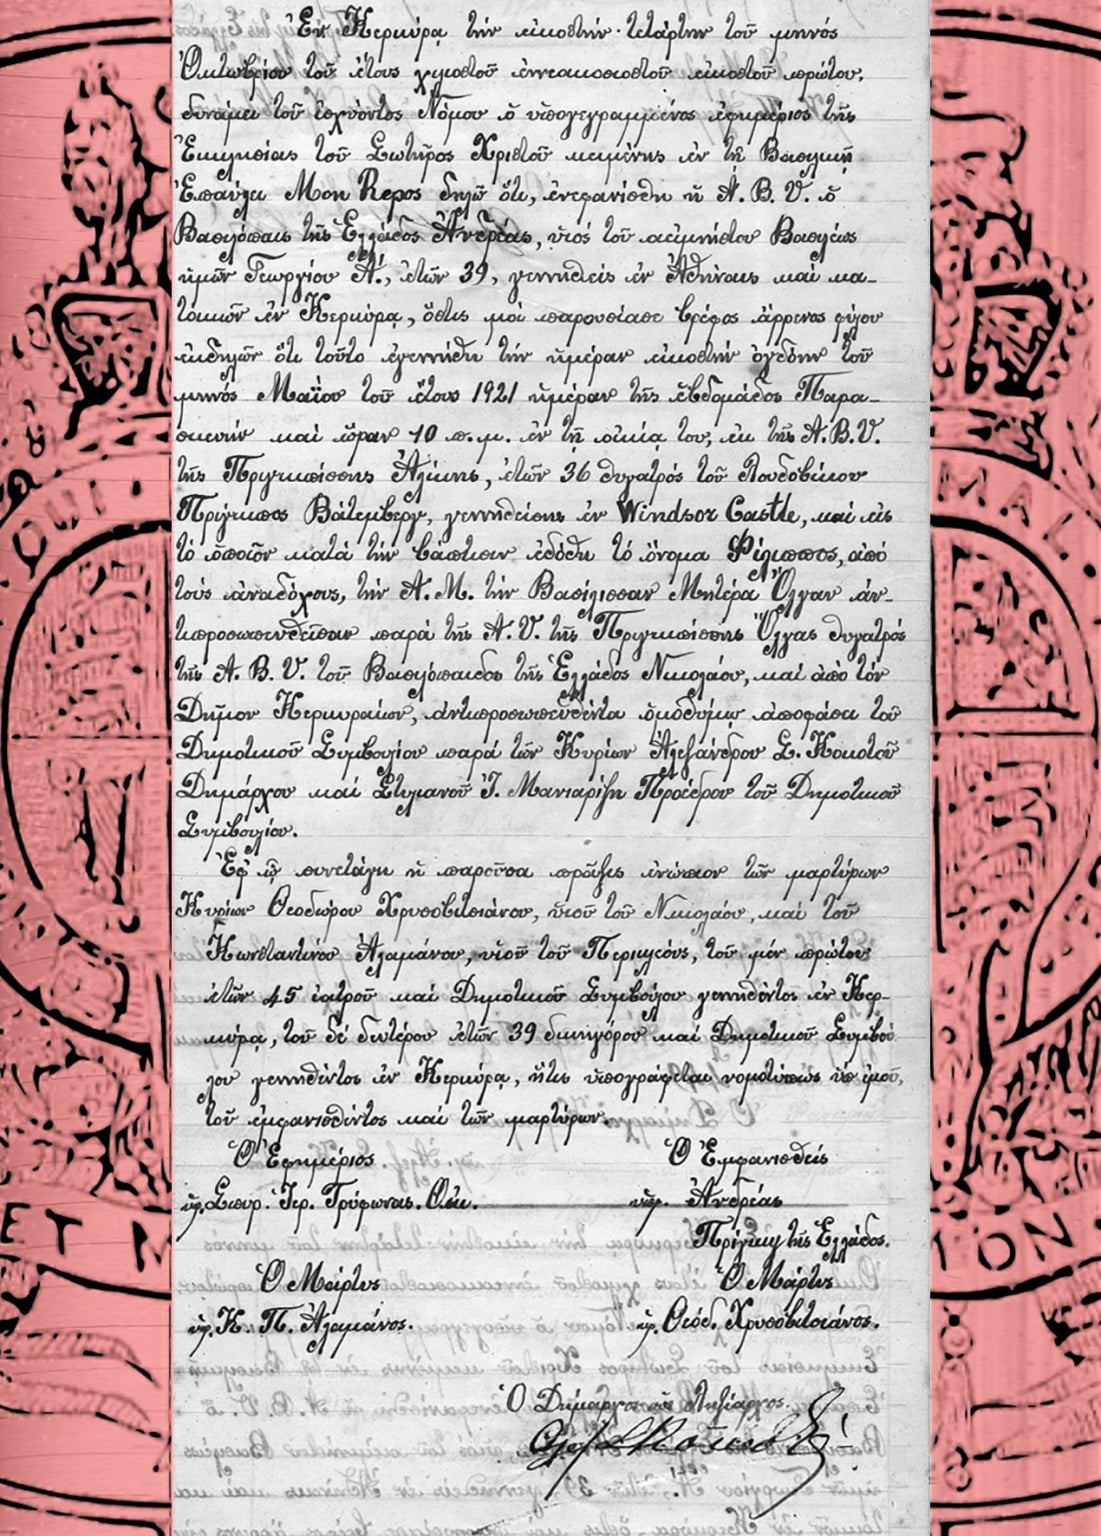 Ἐν Κερκύρᾳ τὴν εἰκοστὴν τετάρτην τοῦ μηνὸς
Ὀκτωβρίου τοῦ ἔτους χιλιοστοῦ ἐννεακοσιοστοῦ εἰκοστοῦ πρώτου,
δυνάμει τοῦ ἰσχύοντος Νόμου ὁ ὑπογεγραμμένος ἐφημέριος τῆς
Ἐκκλησίας τοῦ Σωτῆρος Χριστοῦ κειμένης ἐν τῇ Βασιλικῇ
Ἐπαύλει Mon Repos δηλῶ ὅτι, ἐνεφανίσθη ἡ Α. Β. Υ. ὁ
Βασιλόπαις τῆς Ἑλλάδος Ἀνδρέας, υἱὸς τοῦ ἀειμνήστου Βασιλέως
ἡμῶν Γεωργίου Α΄., ἐτῶν 39, γεννηθεὶς ἐν Ἀθήναις καὶ κα-
τοικῶν ἐν Κερκύρᾳ, ὅστις μοὶ παρουσίασε βρέφος ἄρρενος φύλου
ἐκδηλῶν ὅτι τοῦτο ἐγεννήθη τὴν ἡμέραν εἰκοστὴν ὀγδόην τοῦ
μηνὸς Μαΐου τοῦ ἔτους 1921 ἡμέραν τῆς ἑβδομάδος Παρα-
σκευὴν καὶ ὥραν 10 π.μ. ἐν τῇ οἰκίᾳ του, ἐκ τῆς Α.Β.Υ.
τῆς Πριγκιπίσσης Ἀλίκης, ἐτῶν 36 θυγατρὸς τοῦ Λουδοβίκου
Πρίγκιπος Βάτεμβεργ, γεννηθείσης ἐν Windsor Castle, καὶ εἰς
τὸ ὁποῖον κατὰ τὴν βάπτισιν ἐδόθη τὸ ὄνομα Φίλιππος, ἀπὸ
τοὺς ἀναδόχους, τὴν Α. Μ. τὴν Βασίλισσαν Μητέρα Ὄλγαν ἀν-
τιπροσωπευθεῖσαν παρὰ τῆς Α. Υ. τῆς Πριγκιπίσσης Ὄλγας θυγατρὸς
τῆς Α. Β. Υ. τοῦ Βασιλόπαιδος τῆς Ἑλλάδος Νικολάου, καὶ ἀπὸ τὸν
Δῆμον Κερκυραίων, ἀντιπροσωπευθέντα ὁμοθύμῳ ἀποφάσει τοῦ
Δημοτικοῦ Συμβουλίου παρὰ τῶν Κυρίων Ἀλεξάνδρου Σ. Κοκοτοῦ
Δημάρχου καὶ Στυλιανοῦ Ἰ. Μανιαρίζη Προέδρου τοῦ Δημοτικοῦ
Συμβουλίου.
Ἐφ' ᾧ συνετάγη ἡ παροῦσα πρᾶξις ἐνώπιον τῶν μαρτύρων
Κυρίων Θεοδώρου Χρυσοβιτσιάνου, υἱοῦ τοῦ Νικολάου, καὶ τοῦ
Κωνσταντίνου Ἀλαμάνου, υἱοῦ τοῦ Περικλέους, τοῦ μὲν πρώτου
ἐτῶν 45 ἰατροῦ καὶ Δημοτικοῦ Συμβούλου γεννηθέντος ἐν Κερ-
κύρᾳ, τοῦ δὲ δευτέρου ἐτῶν 39 δικηγόρου καὶ Δημοτικοῦ Συμβού
λου γεννηθέντος ἐν Κερκύρᾳ, ἥτις ὑπογράφεται νομοτύπως ὑπ' ἐμοῦ,
τοῦ ἐμφανισθέντος καὶ τῶν μαρτύρων.
Ὁ Ἐφημέριος Ὁ Ἐμφανισθεὶς
ὑπ. Σπυρ. Ἱερ. Τρύφωνας. Οἰκ. ὑπ. Ἀνδρέας
Πρίγκιψ τῆς Ἑλλάδος.
Ὁ Μάρτυς Ὁ Μάρτυς
ὑπ. Κ. Π. Ἀλαμάνος. ὑπ. Θεόδ. Χρυσοβιτσιάνος.
Ὁ Δήμαρχος ὡς Ληξίαρχος.